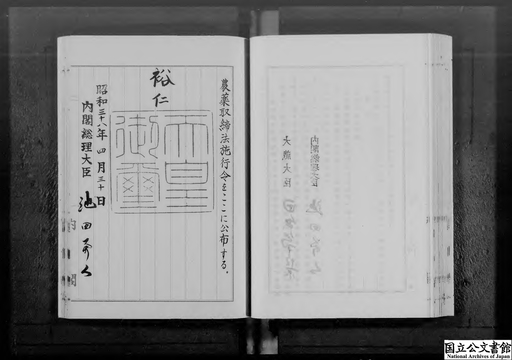 農薬取締法施行令をここに公布する。
裕仁
天皇
御璽
昭和三十八年四月三十日
内閣総理大臣 池田勇人
内閣
内閣総理大臣
大蔵大臣
国立公文書館
National Archives of Japan